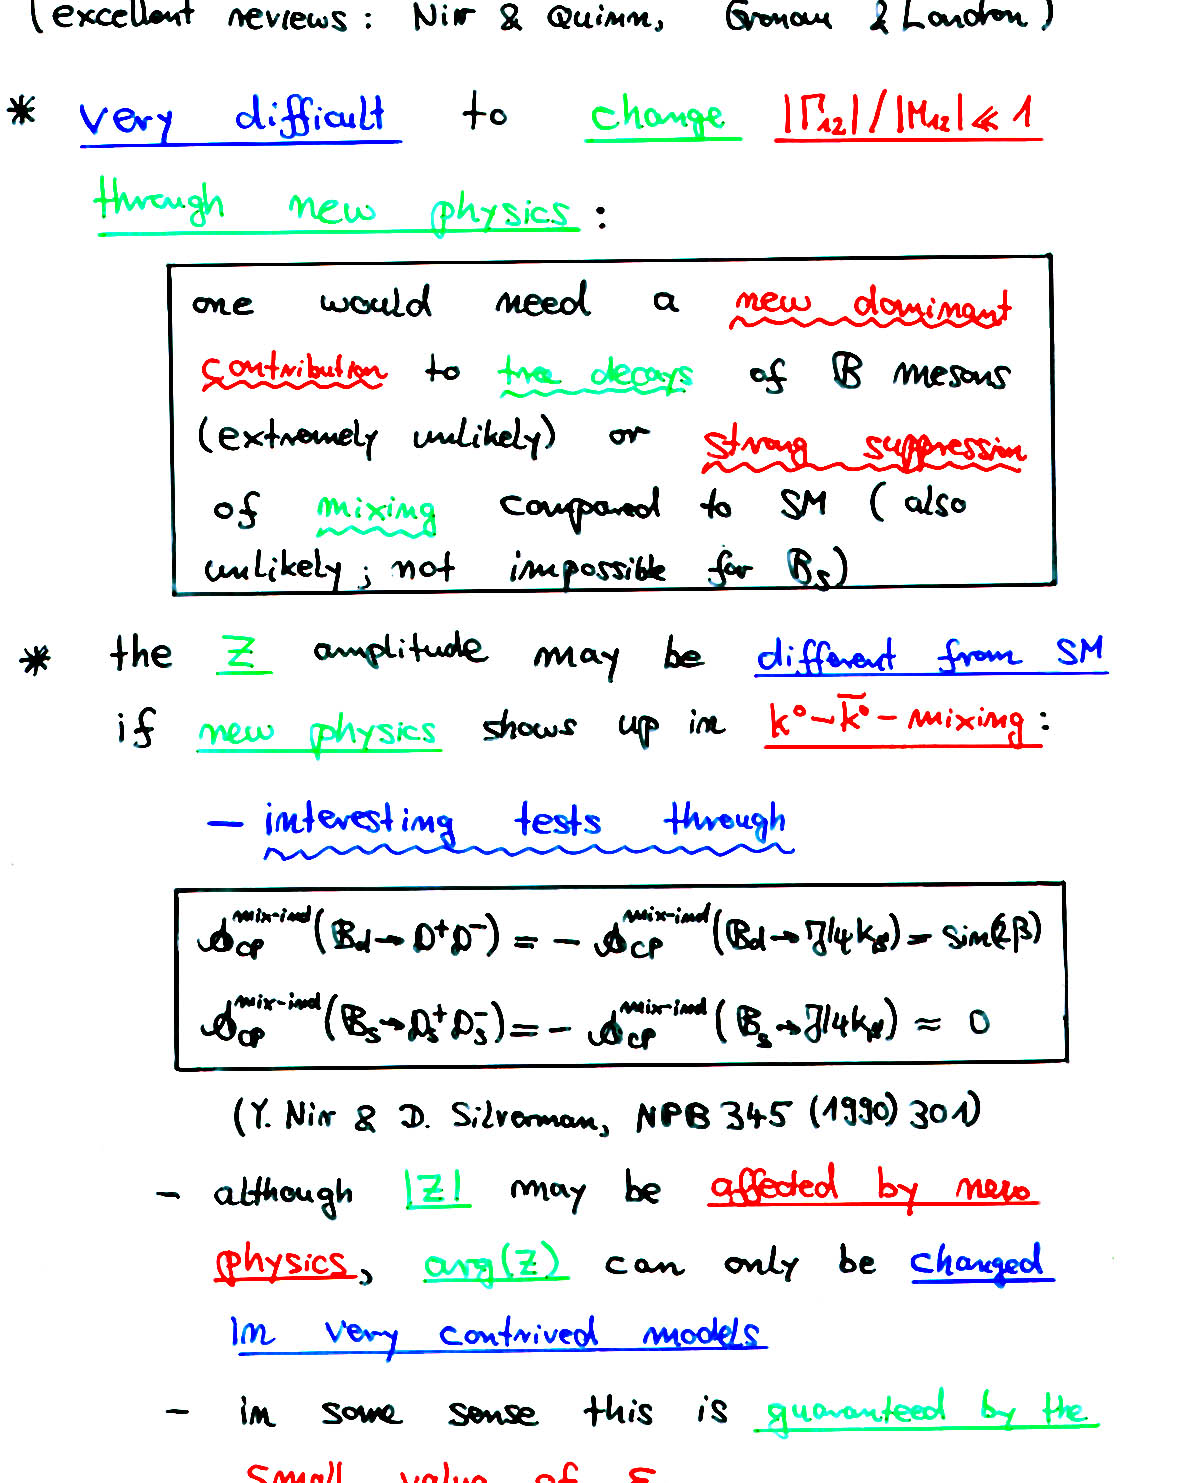 (excellent reviews: Nir & Quinn, Gronau & London)
* very difficult to change |Γ₁₂|/|M₁₂| ≪ 1
through new physics:
one would need a new dominant
contribution to tree decays of B mesons
(extremely unlikely) or strong suppression
of mixing compared to SM (also
unlikely; not impossible for Bₛ)
* the Z amplitude may be different from SM
if new physics shows up in K⁰-K̄⁰-mixing:
- interesting tests through
𝒜_CP^mix-ind (B_d → D⁺D⁻) = - 𝒜_CP^mix-ind (B_d → J/ψ K_S) = sin(2β)
𝒜_CP^mix-ind (B_s → D_s⁺ D_s⁻) = - 𝒜_CP^mix-ind (B_s → J/ψ K_S) ≈ 0
(Y. Nir & D. Silverman, NPB 345 (1990) 301)
- although |Z| may be affected by new
physics, arg(Z) can only be changed
in very contrived models
- in some sense this is guaranteed by the
small value of ε